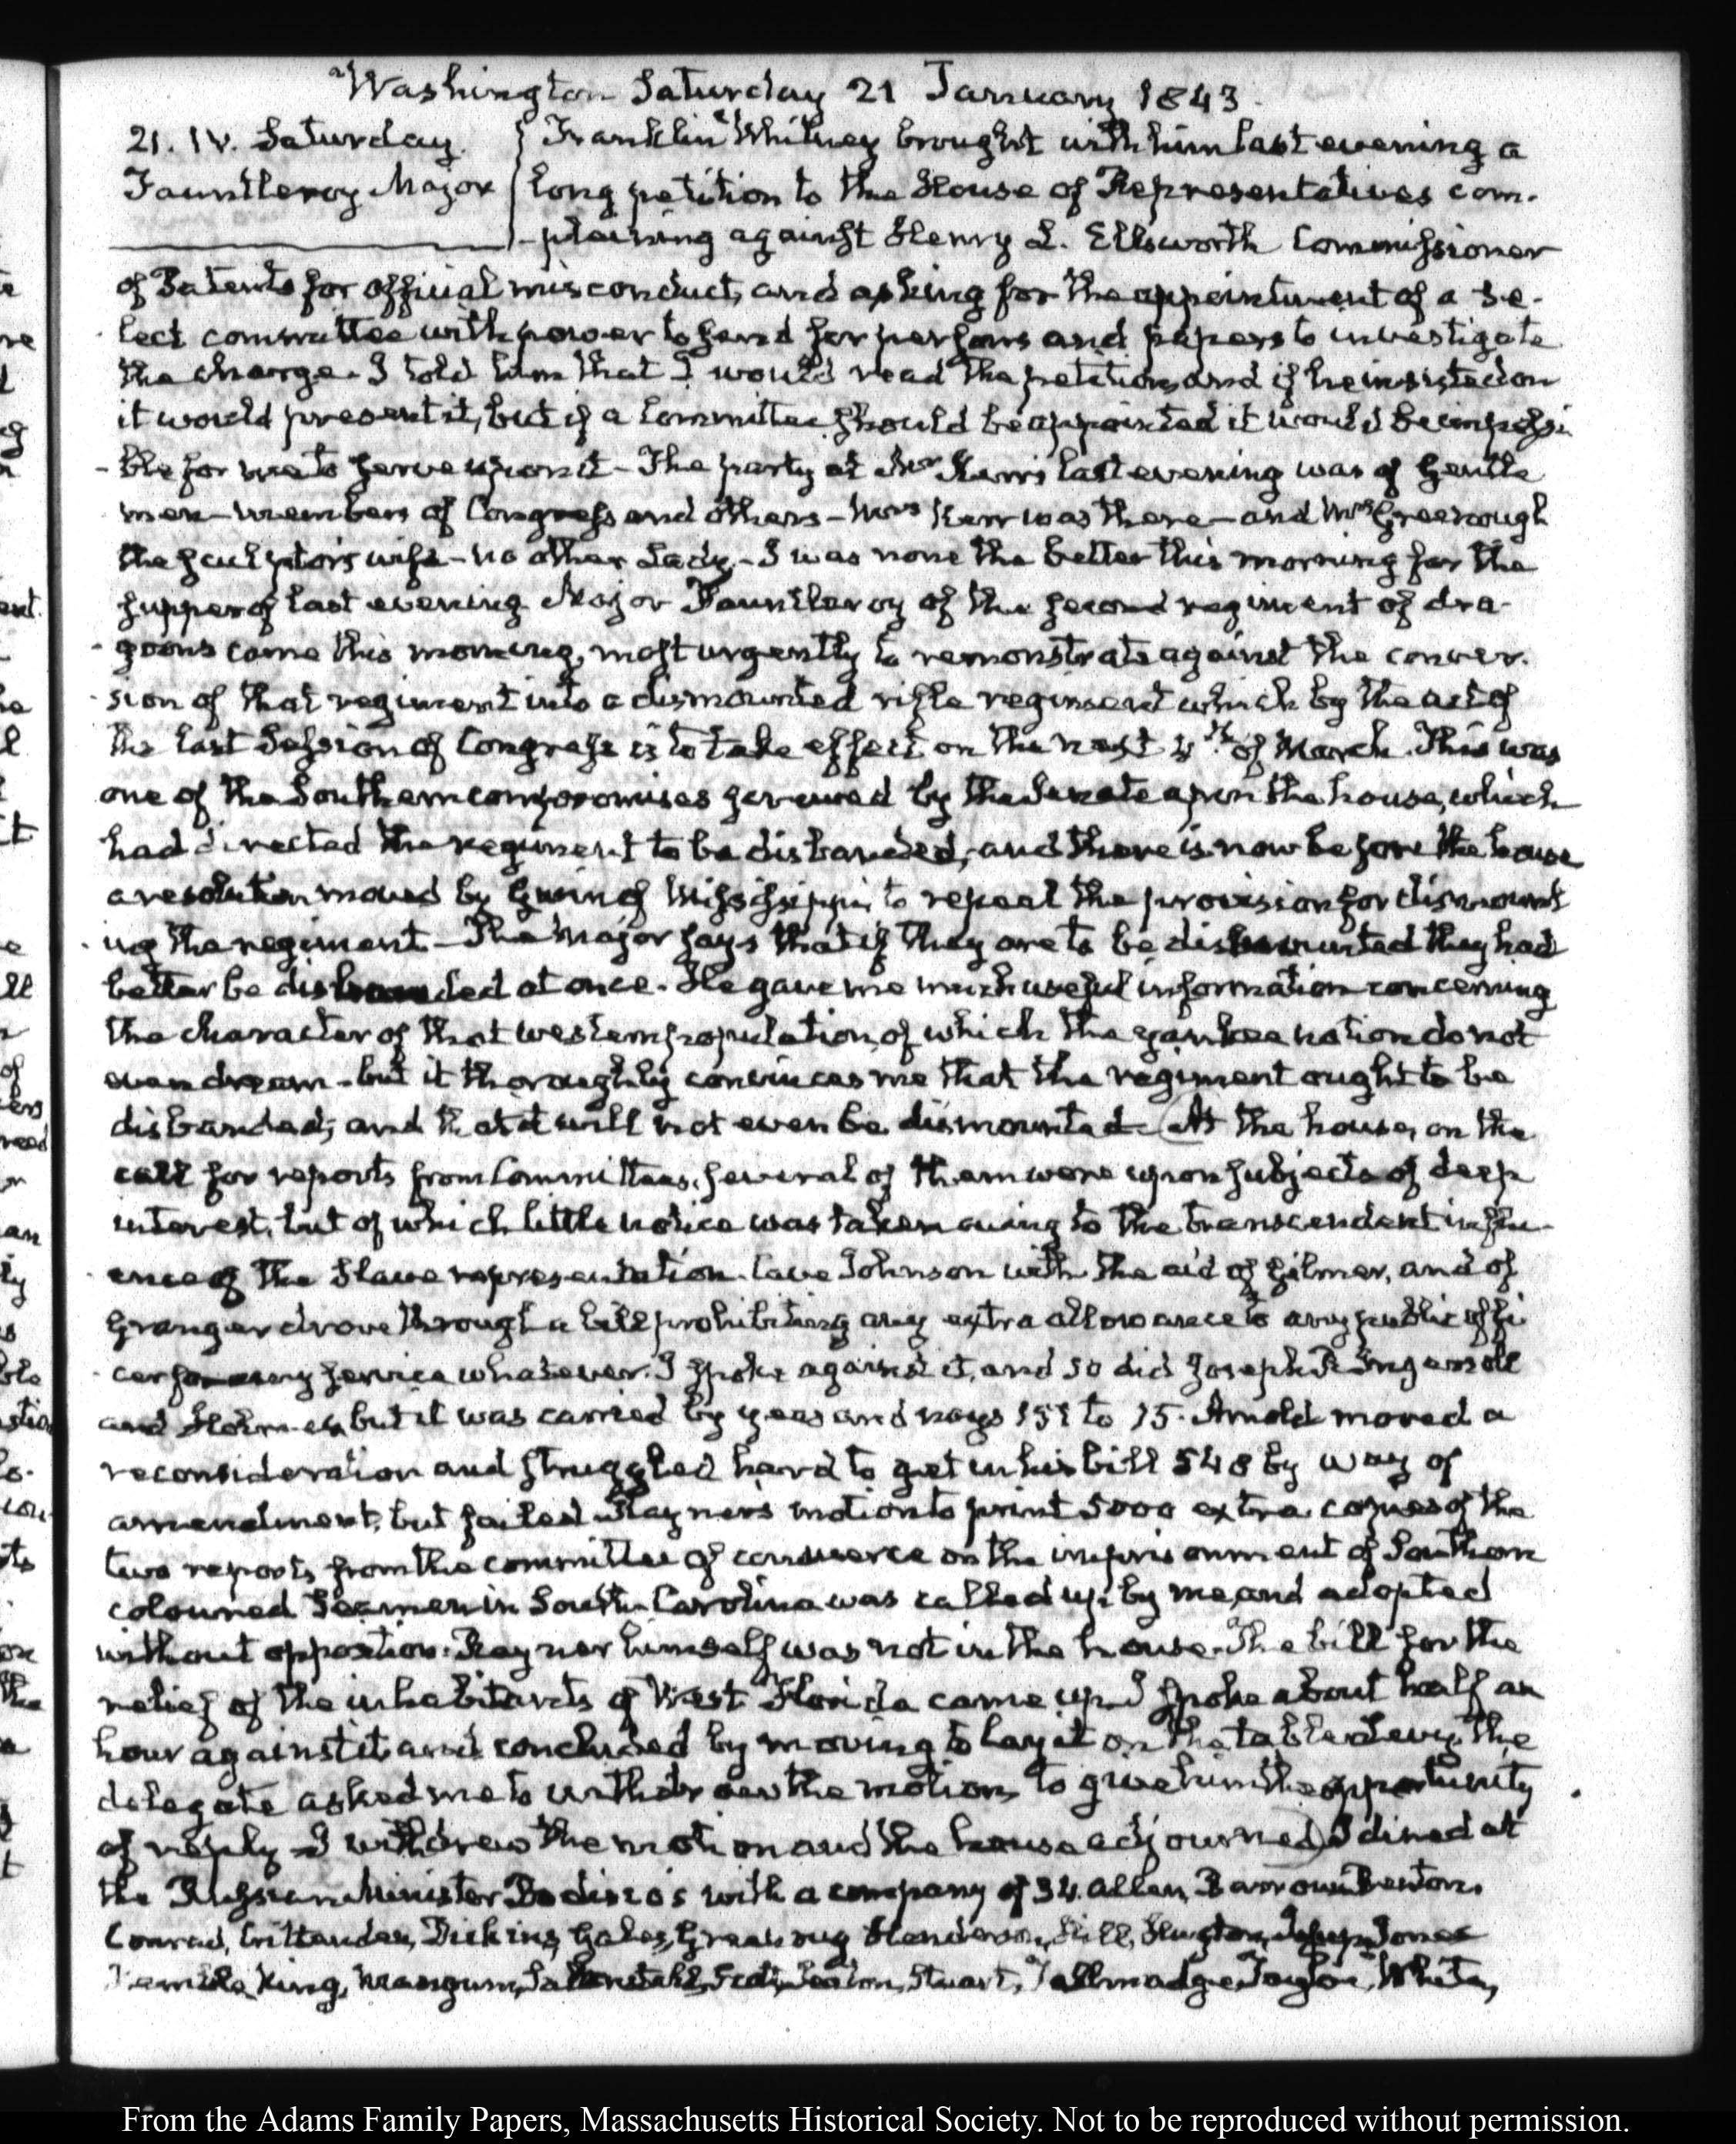 Washington Saturday 21 January 1843.
21. IV. Saturday.
Fauntleroy Major
Franklin Whitney brought with him last evening a
long petition to the House of Representatives com-
-plaining against Henry L. Ellsworth Commissioner
of Patents for official misconduct, and asking for the appointment of a se-
lect committee with power to send for persons and papers to investigate
the charge. I told him that I would read the petition, and if he insisted on
it would present it, but if a Committee should be appointed it would be impossi
-ble for me to serve upon it - The party at Mr Kerr's last evening was of Gentle
men - members of Congress and others - Mrs Kerr was there - and Mrs Greenough
the sculptor's wife - no other Lady - I was none the better this morning for the
supper of last evening. Major Fauntleroy of the second regiment of dra-
-goons came this morning, most urgently to remonstrate against the conver-
-sion of that regiment into a dismounted rifle regiment which by the act of
the last Session of Congress is to take effect on the next 4th of March. This was
one of the Southern compromises by the Senate upon the house, which
had directed the regiment to be disbanded, and there is now before the house
a resolution moved by Gwin of Mississippi to repeal the provision for dismount
-ing the regiment - The Major says that if they are to be dismounted they had
better be disbanded at once. He gave me much useful information concerning
the character of that western population, of which the yankee nation do not
even dream - but it thoroughly convinces me that the regiment ought to be
disbanded; and that it will not even be dismounted - At the house, on the
call for reports from Committees, several of them were upon subjects of deep
interest, but of which little notice was taken owing to the transcendent influ-
-ence of the Slave representation. Cave Johnson with the aid of Gilmer, and of
Granger drove through a bill prohibiting any extra allowance to any public offi
-cer for any service whatever. I spoke against it, and so did Joseph R. Ingersoll
and Holmes, but it was carried by yeas and nays 151 to 15. Arnold moved a
reconsideration and struggled hard to get in his bill 548 by way of
amendment, but failed. Rayner's motion to print 5000 extra copies of the
two reports from the committee of commerce on the imprisonment of Southern
coloured Seamen in South-Carolina was called up by me, and adopted
without opposition. Rayner himself was not in the house. The bill for the
relief of the inhabitants of West Florida came up. I spoke about half an
hour against it, and concluded by moving to lay it on the table. Levy, the
delegate asked me to withdraw the motion, to give him the opportunity
of reply - I withdrew the motion and the house adjourned. I dined at
the Russian Minister Bodisco's with a company of 34. Allen, Barrow, Benton,
Conrad, Crittenden, Dickins, Gales, Greenoug Henderson, Hill, Jesup, Jones
King, Mangum, Saltonstall, Seaton, Stuart, Tallmadge, Taylor, White,
From the Adams Family Papers, Massachusetts Historical Society. Not to be reproduced without permission.